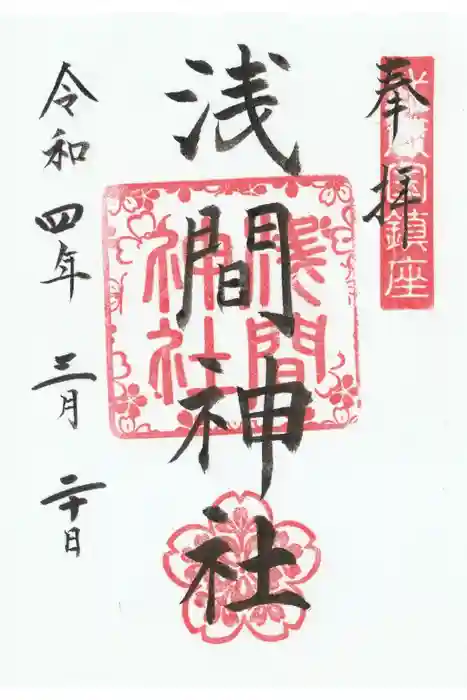 奉拝
国鎮座
浅間神社
淺間
神社
令和四年 三月 二十日